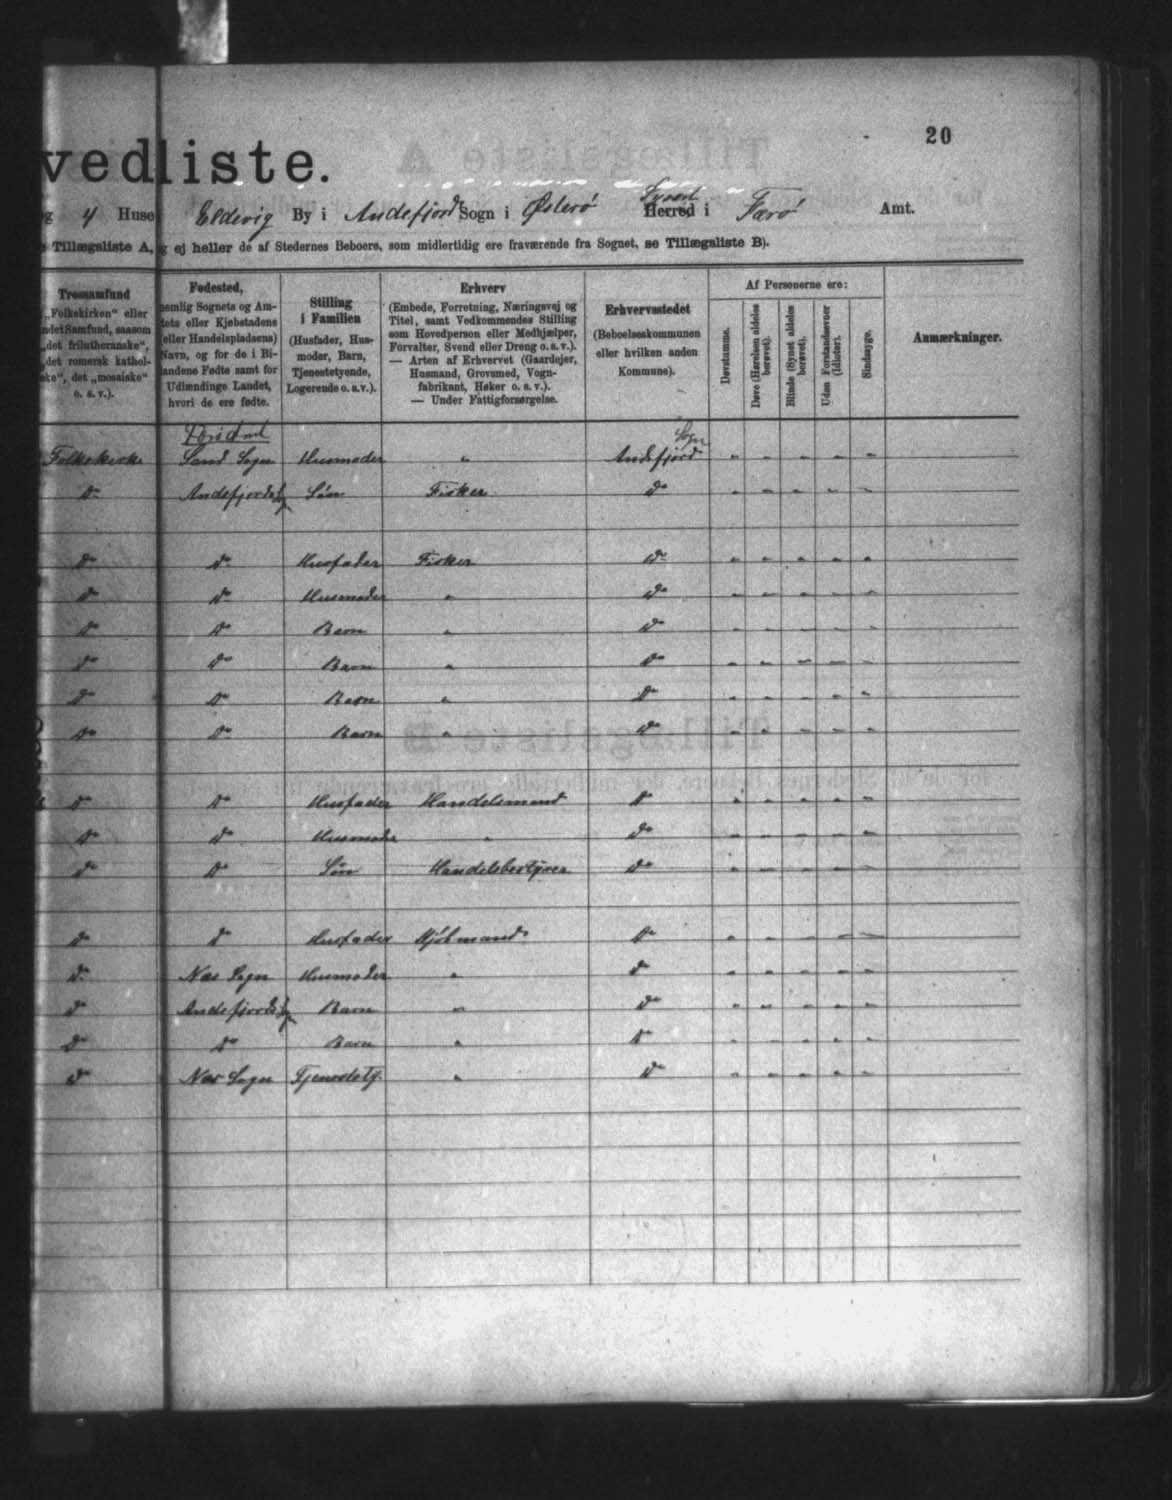 20
vedliste.
g 4 Huse Eldevig By i Andefjord Sogn i Østerø Syssel Herred i Færø Amt.
Tillægsliste A, g ej heller de af Stedernes Beboere, som midlertidig ere fraværende fra Sognet, se Tillægsliste B).
Trossamfund
„Folkekirken" eller
ndet Samfund, saasom
„det frilutheranske",
„det romersk kathol-
ske", det „mosaiske"
o. s. v.).
Fødested,
nemlig Sognets og Am-
tets eller Kjøbstadens
(eller Handelspladsens)
Navn, og for de i Bi-
landene Fødte samt for
Udlændinge Landet,
hvori de ere fødte.
Stilling
i Familien
(Husfader, Hus-
moder, Barn,
Tjenestetyende,
Logerende o. s. v.).
Erhverv
(Embede, Forretning, Næringsvej og
Titel, samt Vedkommendes Stilling
som Hovedperson eller Medhjælper,
Forvalter, Svend eller Dreng o. s. v.).
— Arten af Erhvervet (Gaardejer,
Husmand, Grovsmed, Vogn-
fabrikant, Høker o. s. v.).
— Under Fattigforsørgelse.
Erhvervsstedet
(Beboelseskommunen
eller hvilken anden
Kommune).
Af Personerne ere:
Døvstumme.
Døve (Hørelsen aldeles
berøvet).
Blinde (Synet aldeles
berøvet).
Uden Forstandsevner
(Idioter).
Sindssyge.
Anmærkninger.
Folkekirke Sand Sogn Husmoder " Andefjord Sogn " " " " "
Do Andefjords Sogn Søn Fisker Do " " " " "
Do Do Husfader Fisker Do " " " " "
Do Do Husmoder " Do " " " " "
Do Do Barn " Do " " " " "
Do Do Barn " Do " " " " "
Do Do Barn " Do " " " " "
Do Do Barn " Do " " " " "
Do Do Husfader Handelsmand Do " " " " "
Do Do Husmoder " Do " " " " "
Do Do Søn Handelsbestyrer Do " " " " "
Do Do Husfader Kjøbmand Do " " " " "
Do Næs Sogn Husmoder " Do " " " " "
Do Andefjords Sogn Barn " Do " " " " "
Do Do Barn " Do " " " " "
Do Næs Sogn Tjenestety. " Do " " " " "